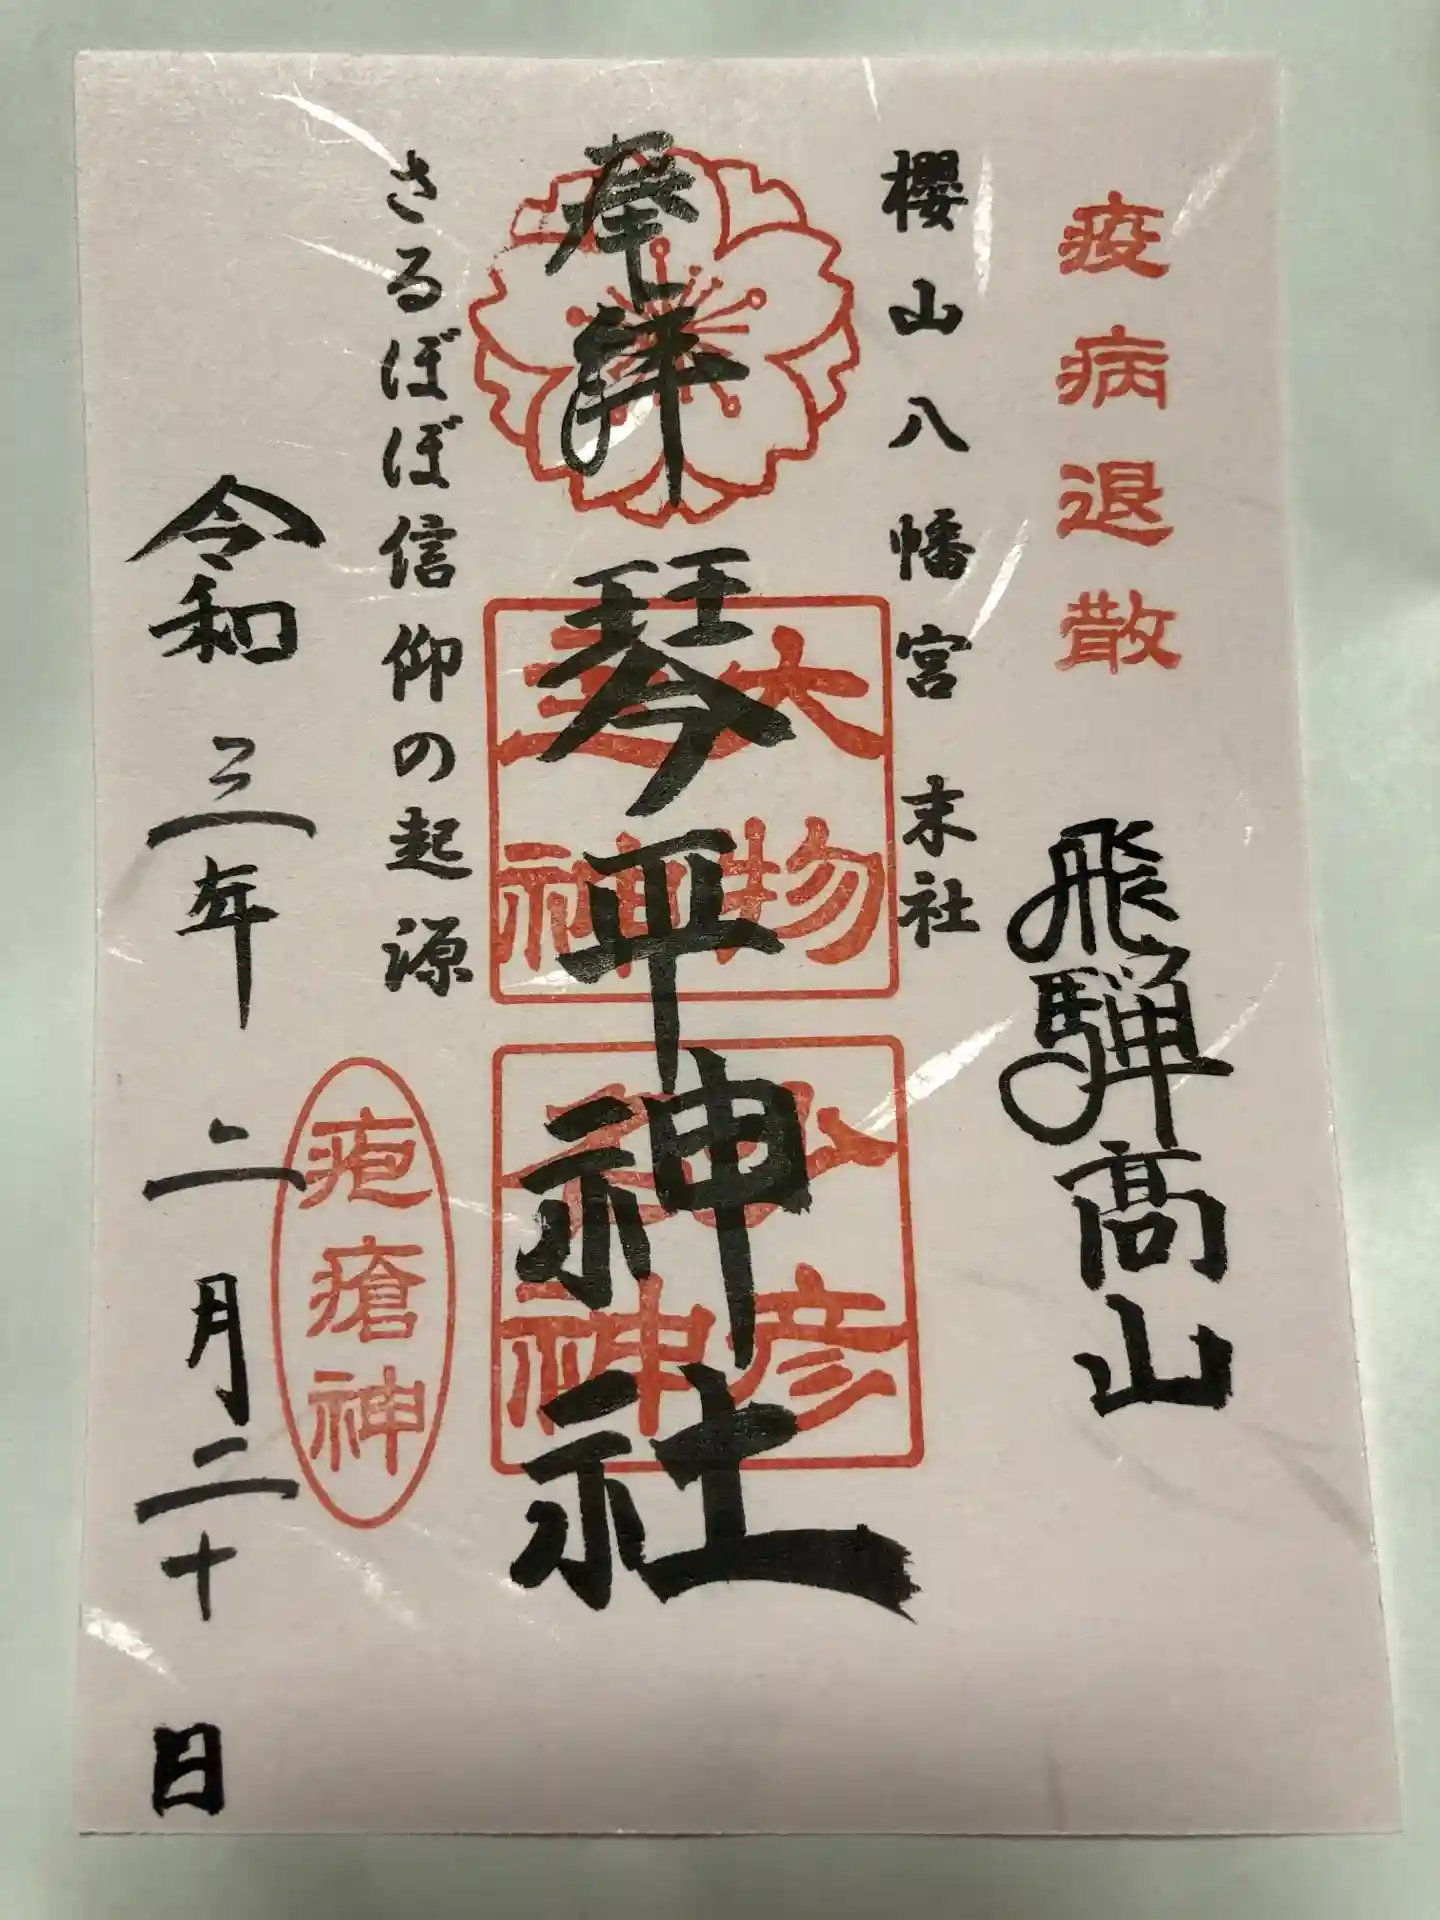 疫病退散
飛騨高山
櫻山八幡宮 末社
奉拝
琴平神社
大物主神
少彦名神
さるぼぼ信仰の起源
疱瘡神
令和三年二月二十日